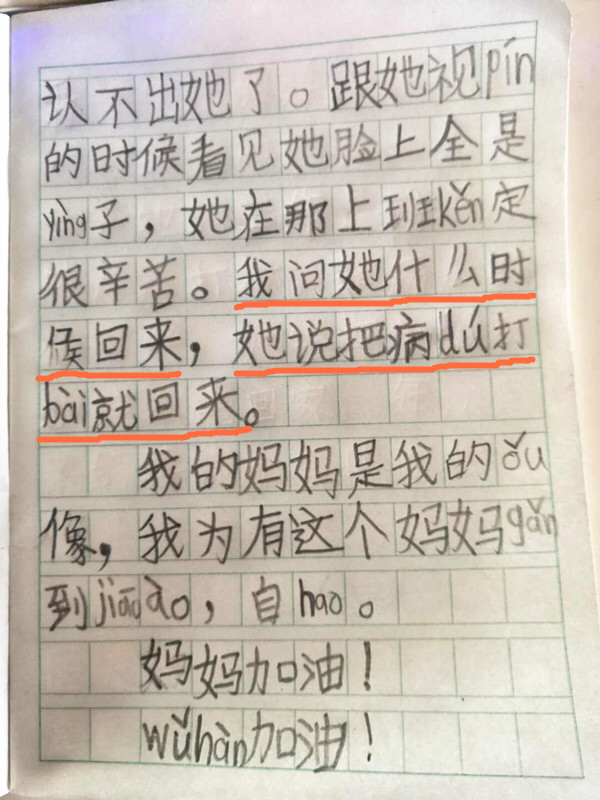 认不出她了。跟她视pín
的时候看见她脸上全是
yìng子，她在那上班kěn定
很辛苦。我问她什么时
候回来，她说把病dú打
bài就回来。
我的妈妈是我的ǒu
像，我为有这个妈妈gǎn
到jiāoào，自hao。
妈妈加油！
wǔhàn加油！